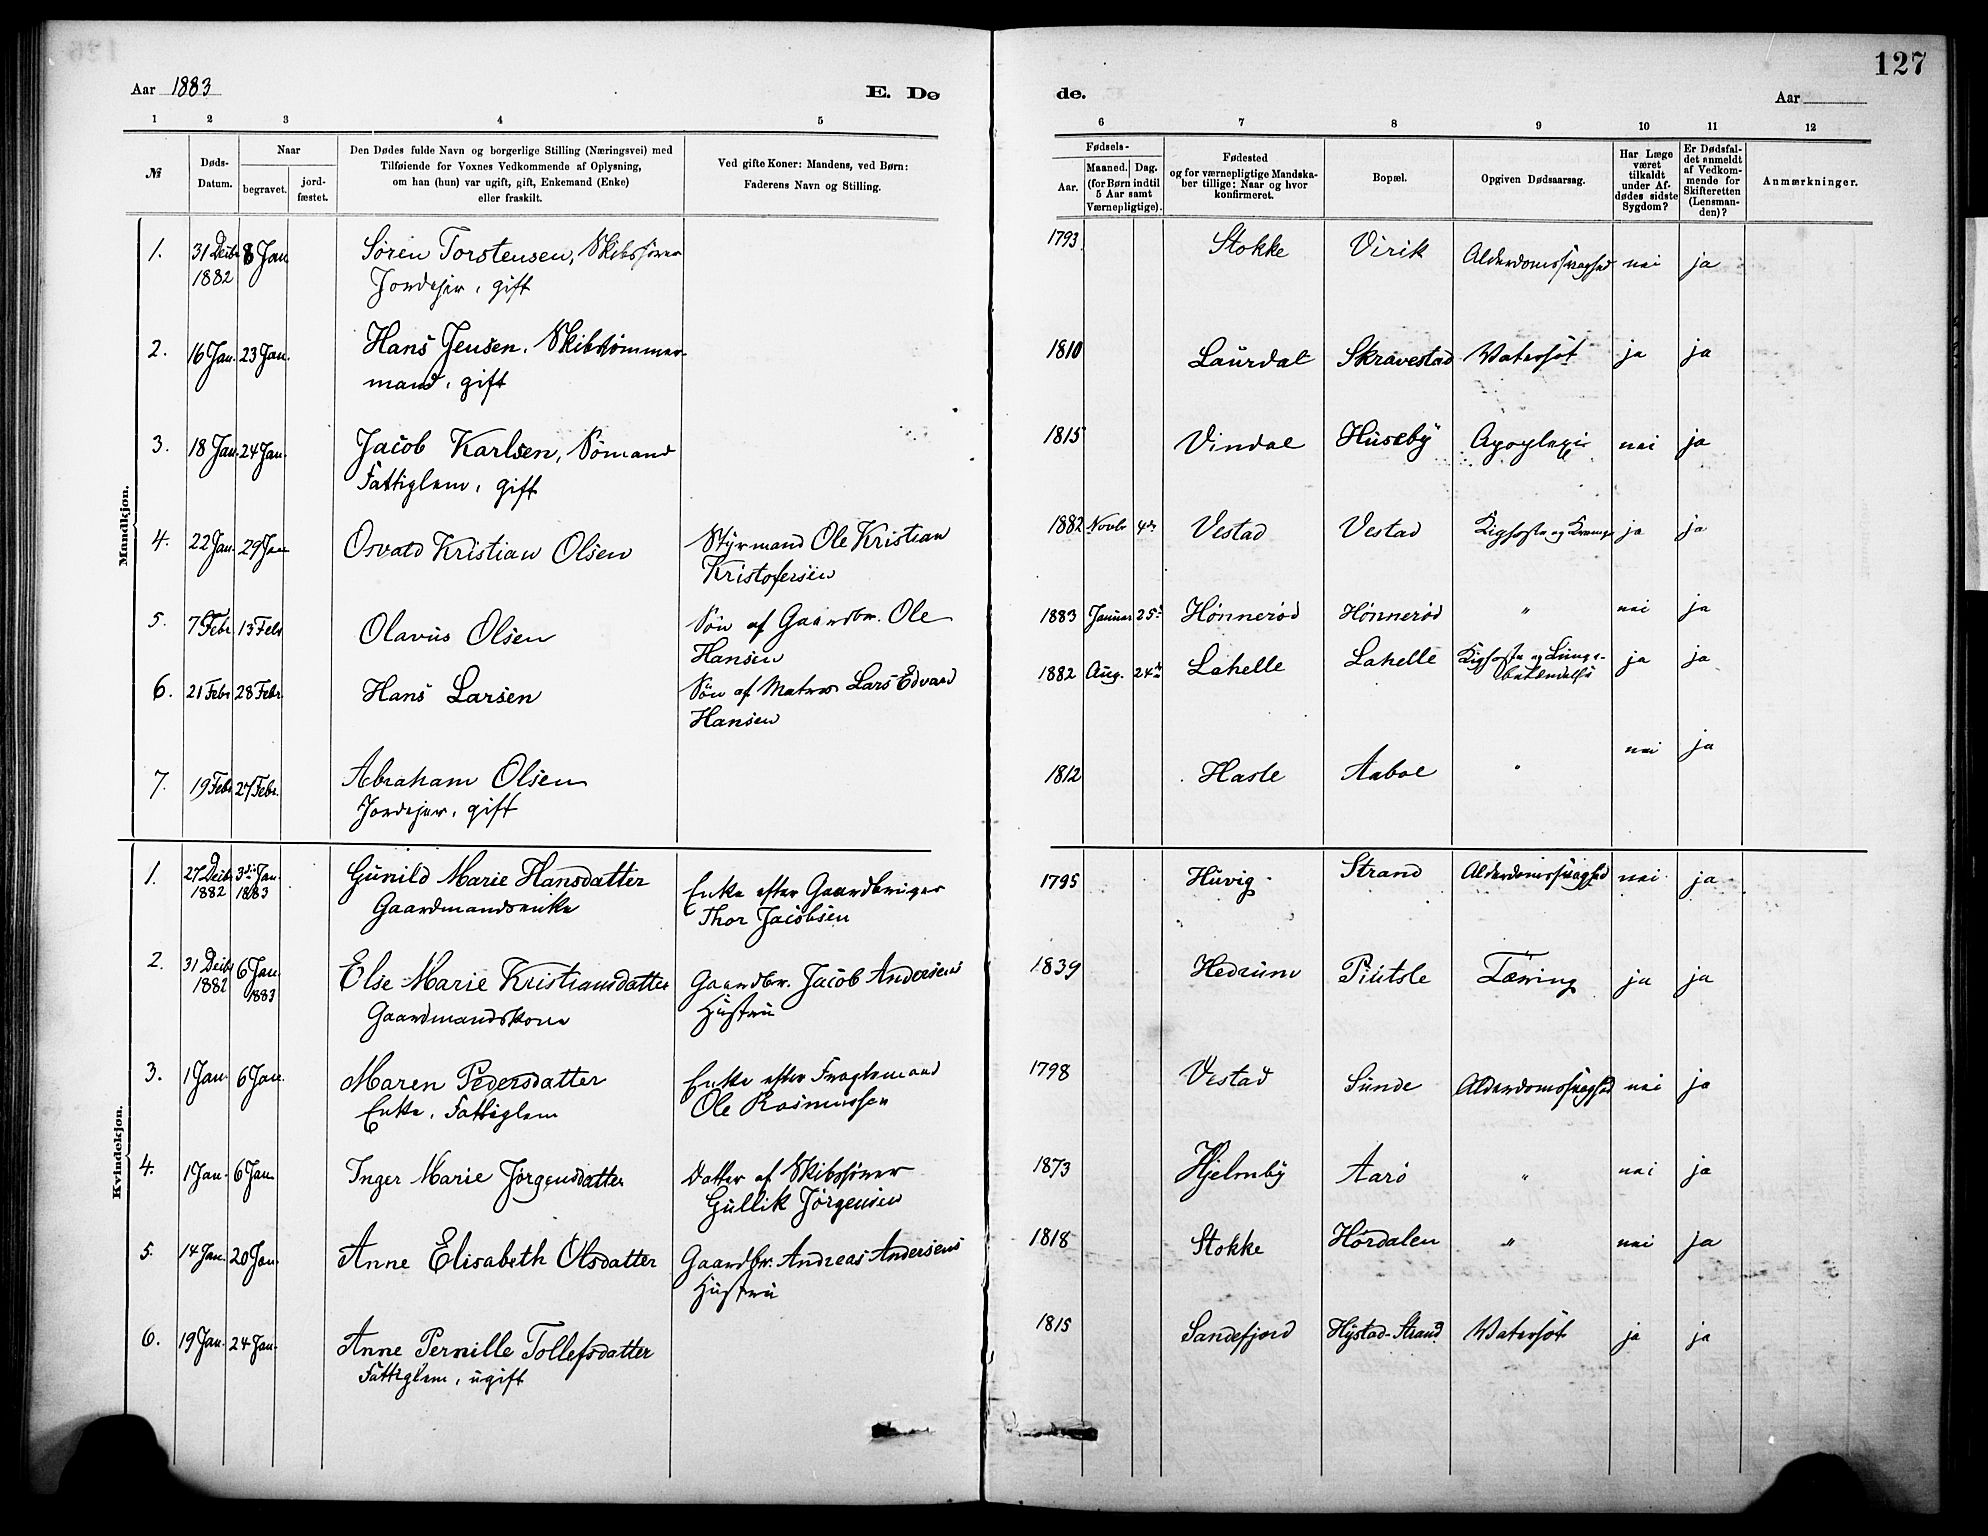 127
Aar 1883
E. Dø
de.
Aar
1 2 3 4 5 6 7 8 9 10 11 12
№
Døds-
Datum.
Naar
begravet.
jord-
fæstet.
Den Dødes fulde Navn og borgerlige Stilling (Næringsvei) med
Tilføiende for Voxnes Vedkommende af Oplysning,
om han (hun) var ugift, gift, Enkemand (Enke)
eller fraskilt.
Ved gifte Koner: Mandens, ved Børn:
Faderens Navn og Stilling.
Fødsels-
Aar.
Maaned.
Dag.
(for Børn indtil
5 Aar samt
Værnepligtige).
Fødested
og for værnepligtige Mandska-
ber tillige: Naar og hvor
konfirmeret.
Bopæl.
Opgiven Dødsaarsag.
Har Læge
været
tilkaldt
under Af-
dødes sidste
Sygdom?
Er Dødsfal-
det anmeldt
af Vedkom-
mende for
Skifteretten
(Lensman-
den)?
Anmærkninger.
Mandkjøn.
1. 31 Decbr 8 Jan Søren Torstensen, Skibsfører 1793 Stokke Virik Alderdomssvaghed nei ja
1882 Jordejer, gift
2. 16 Jan. 23 Jan. Hans Jensen. Skibstømmer- 1810 Laurdal Skravestad Vatersot ja ja
mand, gift
3. 18 Jan. 24 Jan. Jacob Karlsen, Sømand 1815 Vindal Huseby Apoplexi nei ja
Fattiglem, gift
4. 22 Jan. 29 Jan Osvald Kristian Olsen Styrmand Ole Kristian 1882 Novbr 4de Vestad Vestad Kighoste og Krampe ja ja
Kristofersen
5. 7 Febr. 13 Febr Olavus Olsen Søn af Gaardbr. Ole 1883 Januar 25 Hønnerød Hønnerød " nei ja
Hansen
6. 21 Febr 28 Febr. Hans Larsen Søn af Matros Lars Edvard 1882 Aug. 24de Lahelle Lahelle Kighoste og Lunge- ja ja
Hansen betændelse
7. 19 Febr 27 Febr. Abraham Olsen 1812 Hasle Aaboe " nei ja
Jordejer, gift
Kvindekjøn.
1. 27 Decbr 3die Jan Gunild Marie Hansdatter Enke efter Gaardbruger 1795 Huvig Strand Alderdomssvaghed nei ja
1882 1883 Gaardmandsenke Thor Jacobsen
2. 31 Decbr 6 Jan. Else Marie Kristiansdatter Gaardbr. Jacob Andersens 1839 Hedrum Piutsle Tæring ja ja
1882 1883 Gaardmandskone Hustru
3. 1 Jan. 6 Jan. Maren Pedersdatter Enke efter Fragtemand 1798 Vestad Sunde Alderdomssvaghed nei ja
Enke, Fattiglem Ole Rasmussen
4. 1 Jan. 6 Jan Inger Marie Jørgensdatter Datter af Skibsfører 1873 Hjelmby Aarø " nei ja
Gullik Jørgensen
5. 14 Jan. 20 Jan. Anne Elisabeth Olsdatter Gaardbr. Andreas Andersens 1818 Stokke Hørdalen " nei ja
Hustru
6. 19 Jan. 24 Jan. Anne Pernille Tollefsdatter 1815 Sandefjord Hystad-Strand Vatersot ja ja
Fattiglem, ugift